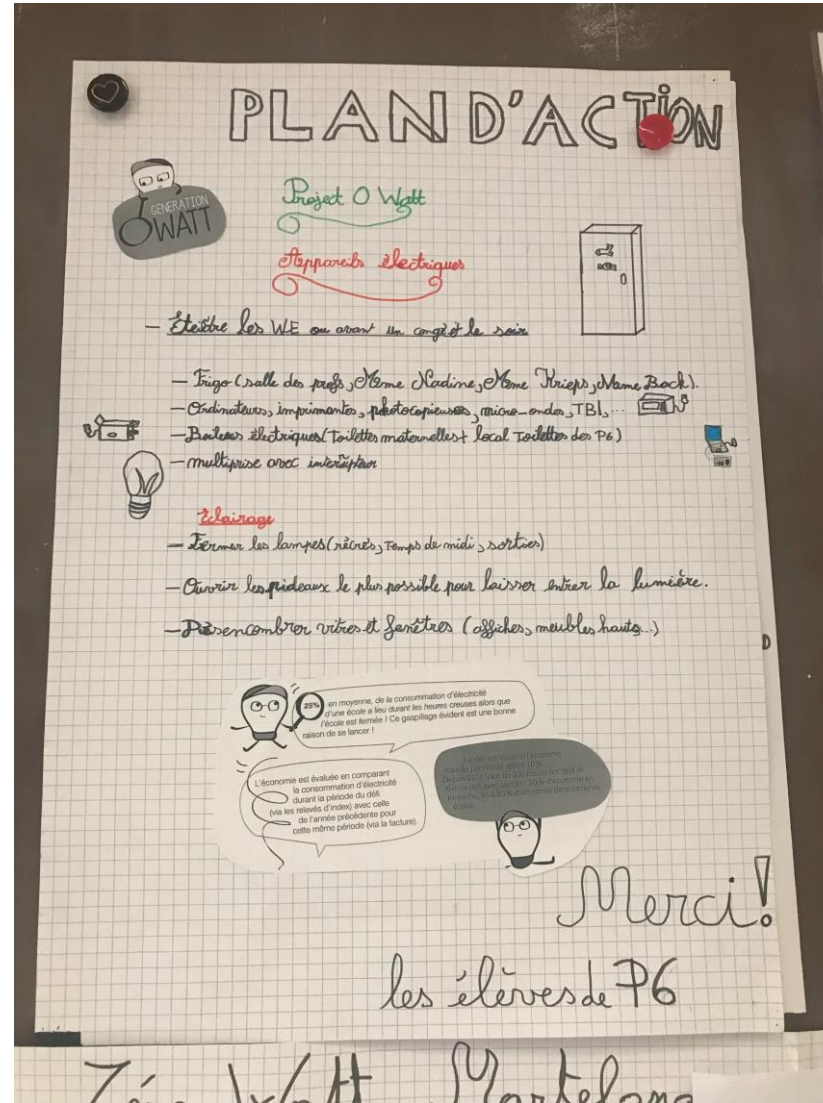 PLAN D'ACTION
GENERATION
OWATT
Project O Watt
Appareils électriques
– Éteidre les WE ou avant un congé et le soir
– Frigo (salle des profs, Mme Nadine, Mme Krieps, Mame Bock).
– Ordinateurs, imprimantes, photocopieuses, micro-ondes, TBI,...
– Boilers électriques (Toilettes maternelles + local Toilettes des P6)
– multiprise avec interrupteur
Eclairage
– Fermer les lampes (récrés, Temps de midi, sorties)
– Ouvrir les rideaux le plus possible pour laisser entrer la lumière.
– Désencombrer vitres et fenêtres (affiches, meubles hauts...)
D
25% en moyenne, de la consommation d'électricité
d'une école a lieu durant les heures creuses alors que
l'école est fermée ! Ce gaspillage évident est une bonne
raison de se lancer !
L'économie est évaluée en comparant
la consommation d'électricité
durant la période du défi
(via les relevés d'index) avec celle
de l'année précédente pour
cette même période (via la facture).
Le défi est réussi si l'économie
réalisée par l'école atteint 10 %.
Depuis 2011, plus de 300 écoles ont déjà re-
levé ce défi avec succès : 20 % d'économie en
moyenne, 40 à 50 % d'économie dans certaines
écoles.
Merci!
les élèves de P6
Zéro Watt Martelang